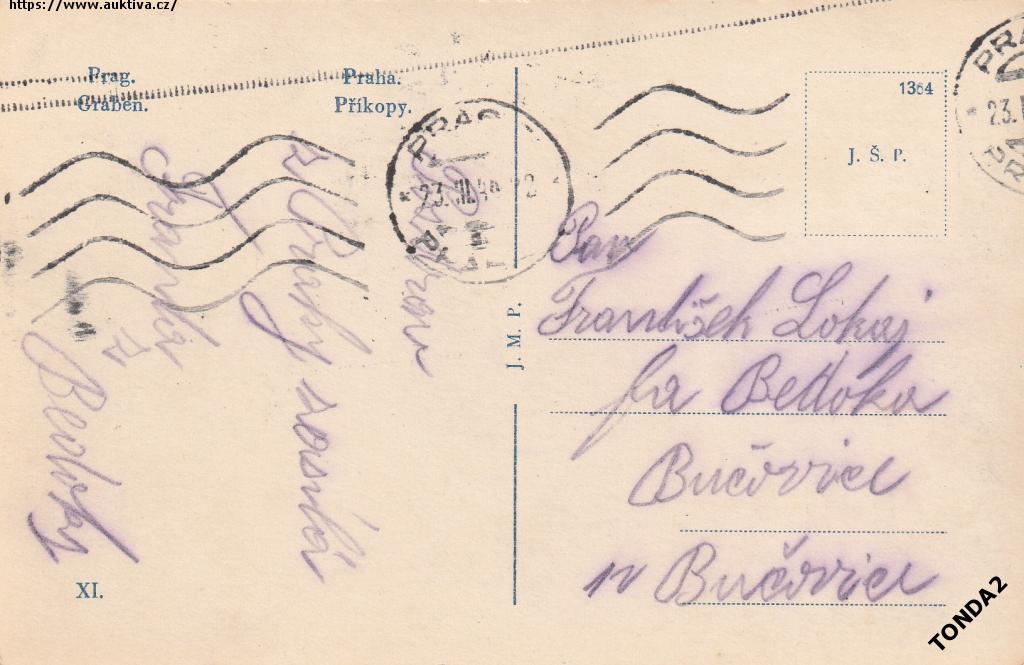 https://www.auktiva.cz/
Prag.
Graben.
Praha.
Příkopy.
1364
J. Š. P.
PRAG
23.III.4
PRA
23.
PR
Pozdrav
z Prahy zasílá
Franta
z
J. M. P.
Pan
František Lokaj
fa
Bučovice
u Bučovice
XI.
TONDA2